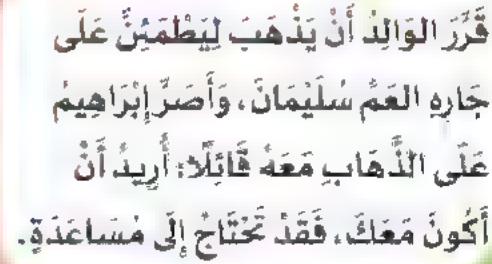 قَرَّرَ الوَالِدُ أَنْ يَذْهَبَ لِيَطْمَئِنَّ عَلَى
جَارِهِ العَمِّ سُلَيْمَانَ، وَأَصَرَّ إِبْرَاهِيمُ
عَلَى الذَّهَابِ مَعَهُ قَائِلًا: أُرِيدُ أَنْ
أَكُونَ مَعَكَ، فَقَدْ تَحْتَاجُ إِلَى مُسَاعَدَةٍ.